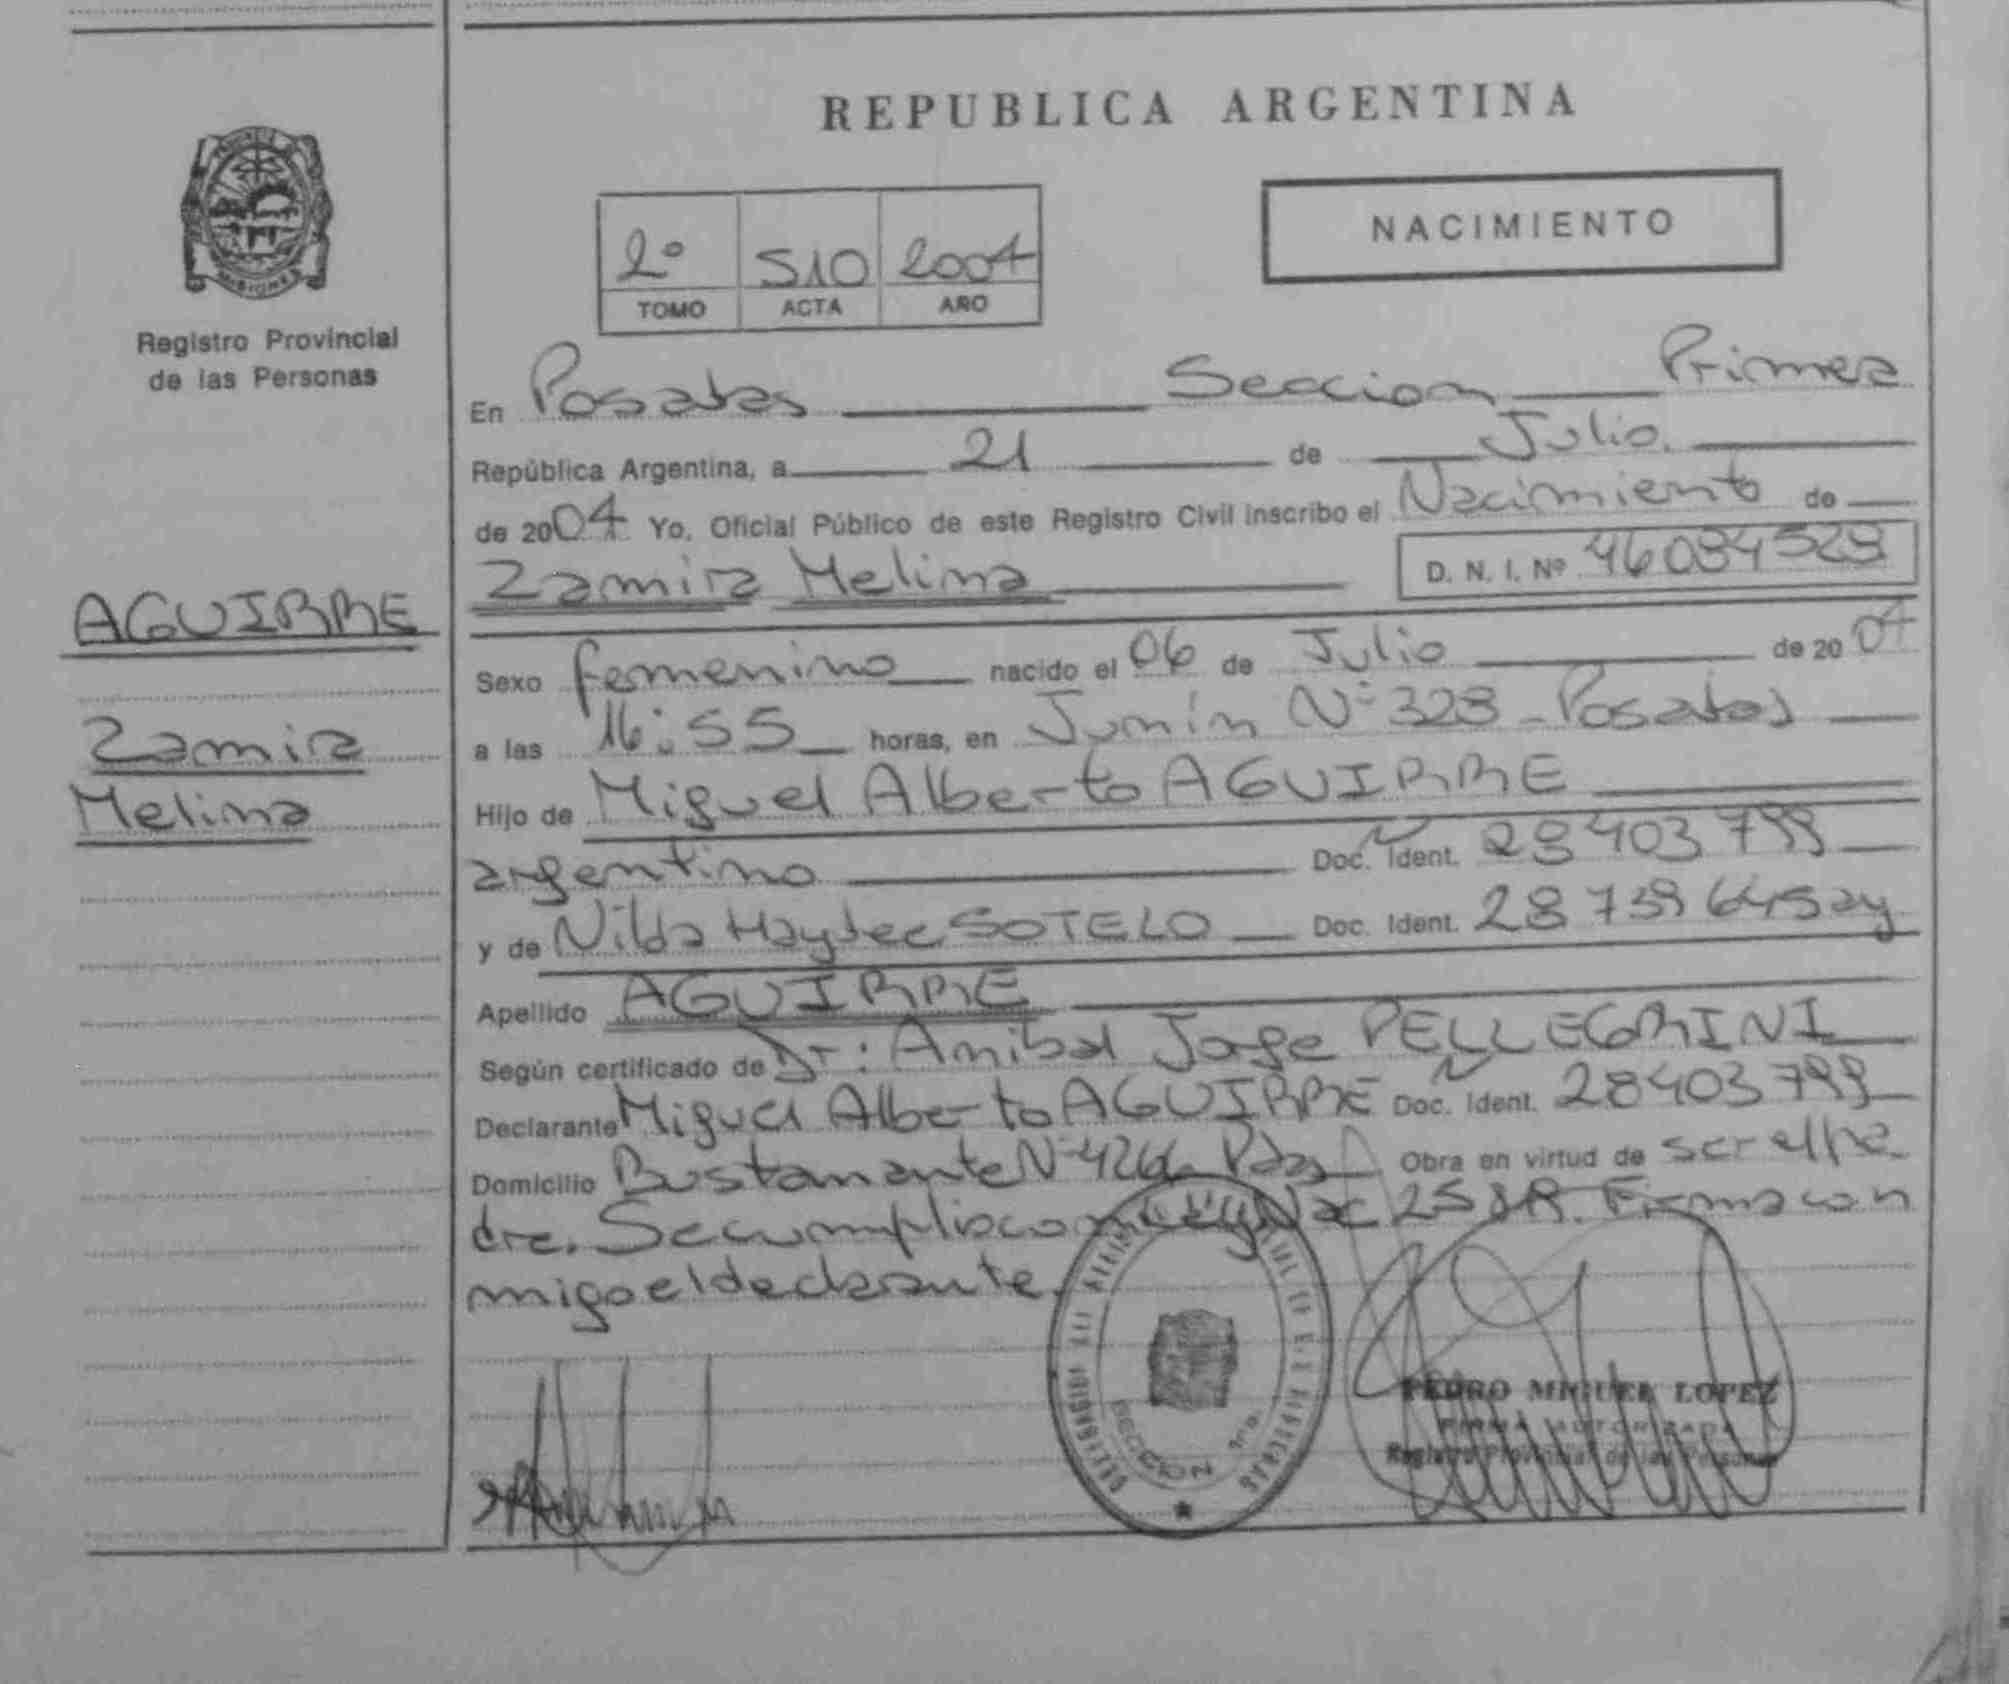 REPUBLICA ARGENTINA
NACIMIENTO
2º 510 2004
TOMO ACTA AÑO
Registro Provincial
de las Personas
En Posadas Seccion Primera
República Argentina, a 21 de Julio.
de 2004 Yo, Oficial Público de este Registro Civil inscribo el Nacimiento de
Zamira Melina D. N. I. Nº 46034523
AGUIRRE
Zamira
Melina
Sexo femenino nacido el 06 de Julio de 2004
a las 16:55 horas, en Junín Nº 323 - Posadas
Hijo de Miguel Alberto AGUIRRE
argentino Doc. Ident. 28403799
y de Nilda Haydee SOTELO Doc. Ident. 28739645 ay
Apellido AGUIRRE
Según certificado de Dr: Anibal Jorge PELLEGRINI
Declarante Miguel Alberto AGUIRRE Doc. Ident. 28403799
Domicilio Bustamante Nº Pdas Obra en virtud de ser el pa-
dre. Se cumplio con Ley Nac Firma con
migo el declarante.
SECCION 1ra.
PEDRO MIGUEL LOPEZ
FIRMA AUTORIZADA
Registro Provincial de las Personas